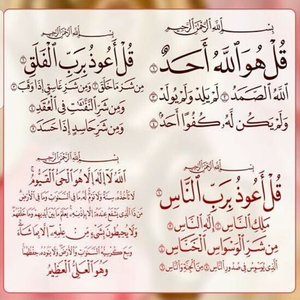 بِسْمِ اللَّهِ الرَّحْمَٰنِ الرَّحِيمِ
قُلْ هُوَ اللَّهُ أَحَدٌ ١
اللَّهُ الصَّمَدُ ٢ لَمْ يَلِدْ وَلَمْ يُولَدْ ٣
وَلَمْ يَكُن لَّهُ كُفُوًا أَحَدٌ ٤
بِسْمِ اللَّهِ الرَّحْمَٰنِ الرَّحِيمِ
قُلْ أَعُوذُ بِرَبِّ الْفَلَقِ ١
مِن شَرِّ مَا خَلَقَ ٢ وَمِن شَرِّ غَاسِقٍ إِذَا وَقَبَ ٣
وَمِن شَرِّ النَّفَّاثَاتِ فِي الْعُقَدِ ٤
وَمِن شَرِّ حَاسِدٍ إِذَا حَسَدَ ٥
بِسْمِ اللَّهِ الرَّحْمَٰنِ الرَّحِيمِ
قُلْ أَعُوذُ بِرَبِّ النَّاسِ ١
مَلِكِ النَّاسِ ٢ إِلَٰهِ النَّاسِ ٣
مِن شَرِّ الْوَسْوَاسِ الْخَنَّاسِ ٤
الَّذِي يُوَسْوِسُ فِي صُدُورِ النَّاسِ ٥ مِنَ الْجِنَّةِ وَالنَّاسِ ٦
بِسْمِ اللَّهِ الرَّحْمَٰنِ الرَّحِيمِ
اللَّهُ لَا إِلَٰهَ إِلَّا هُوَ الْحَيُّ الْقَيُّومُ
لَا تَأْخُذُهُ سِنَةٌ وَلَا نَوْمٌ لَّهُ مَا فِي السَّمَاوَاتِ وَمَا فِي الْأَرْضِ
مَن ذَا الَّذِي يَشْفَعُ عِندَهُ إِلَّا بِإِذْنِهِ يَعْلَمُ مَا بَيْنَ أَيْدِيهِمْ وَمَا خَلْفَهُمْ
وَلَا يُحِيطُونَ بِشَيْءٍ مِّنْ عِلْمِهِ إِلَّا بِمَا شَاءَ
وَسِعَ كُرْسِيُّهُ السَّمَاوَاتِ وَالْأَرْضَ وَلَا يَئُودُهُ حِفْظُهُمَا
وَهُوَ الْعَلِيُّ الْعَظِيمُ